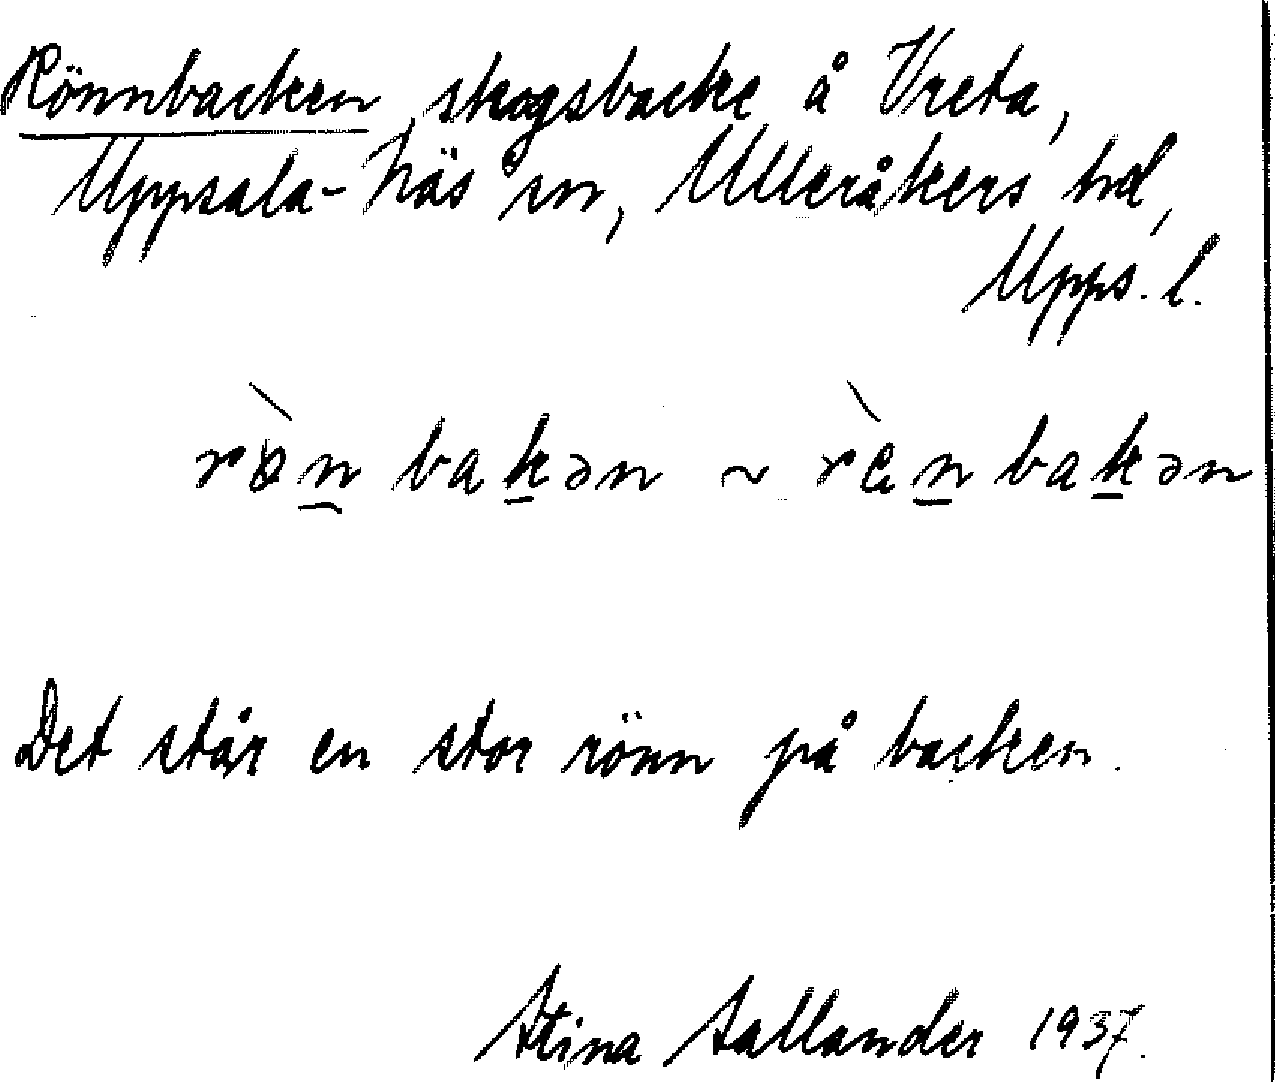 Rönnbacken, skogsbacke å Vreta,
Uppsala-Näs sn, Ulleråkers hd,
Upps. l.
bakən ~ bakən
Det står en stor rönn på backen.
Stina Sallander 1937.